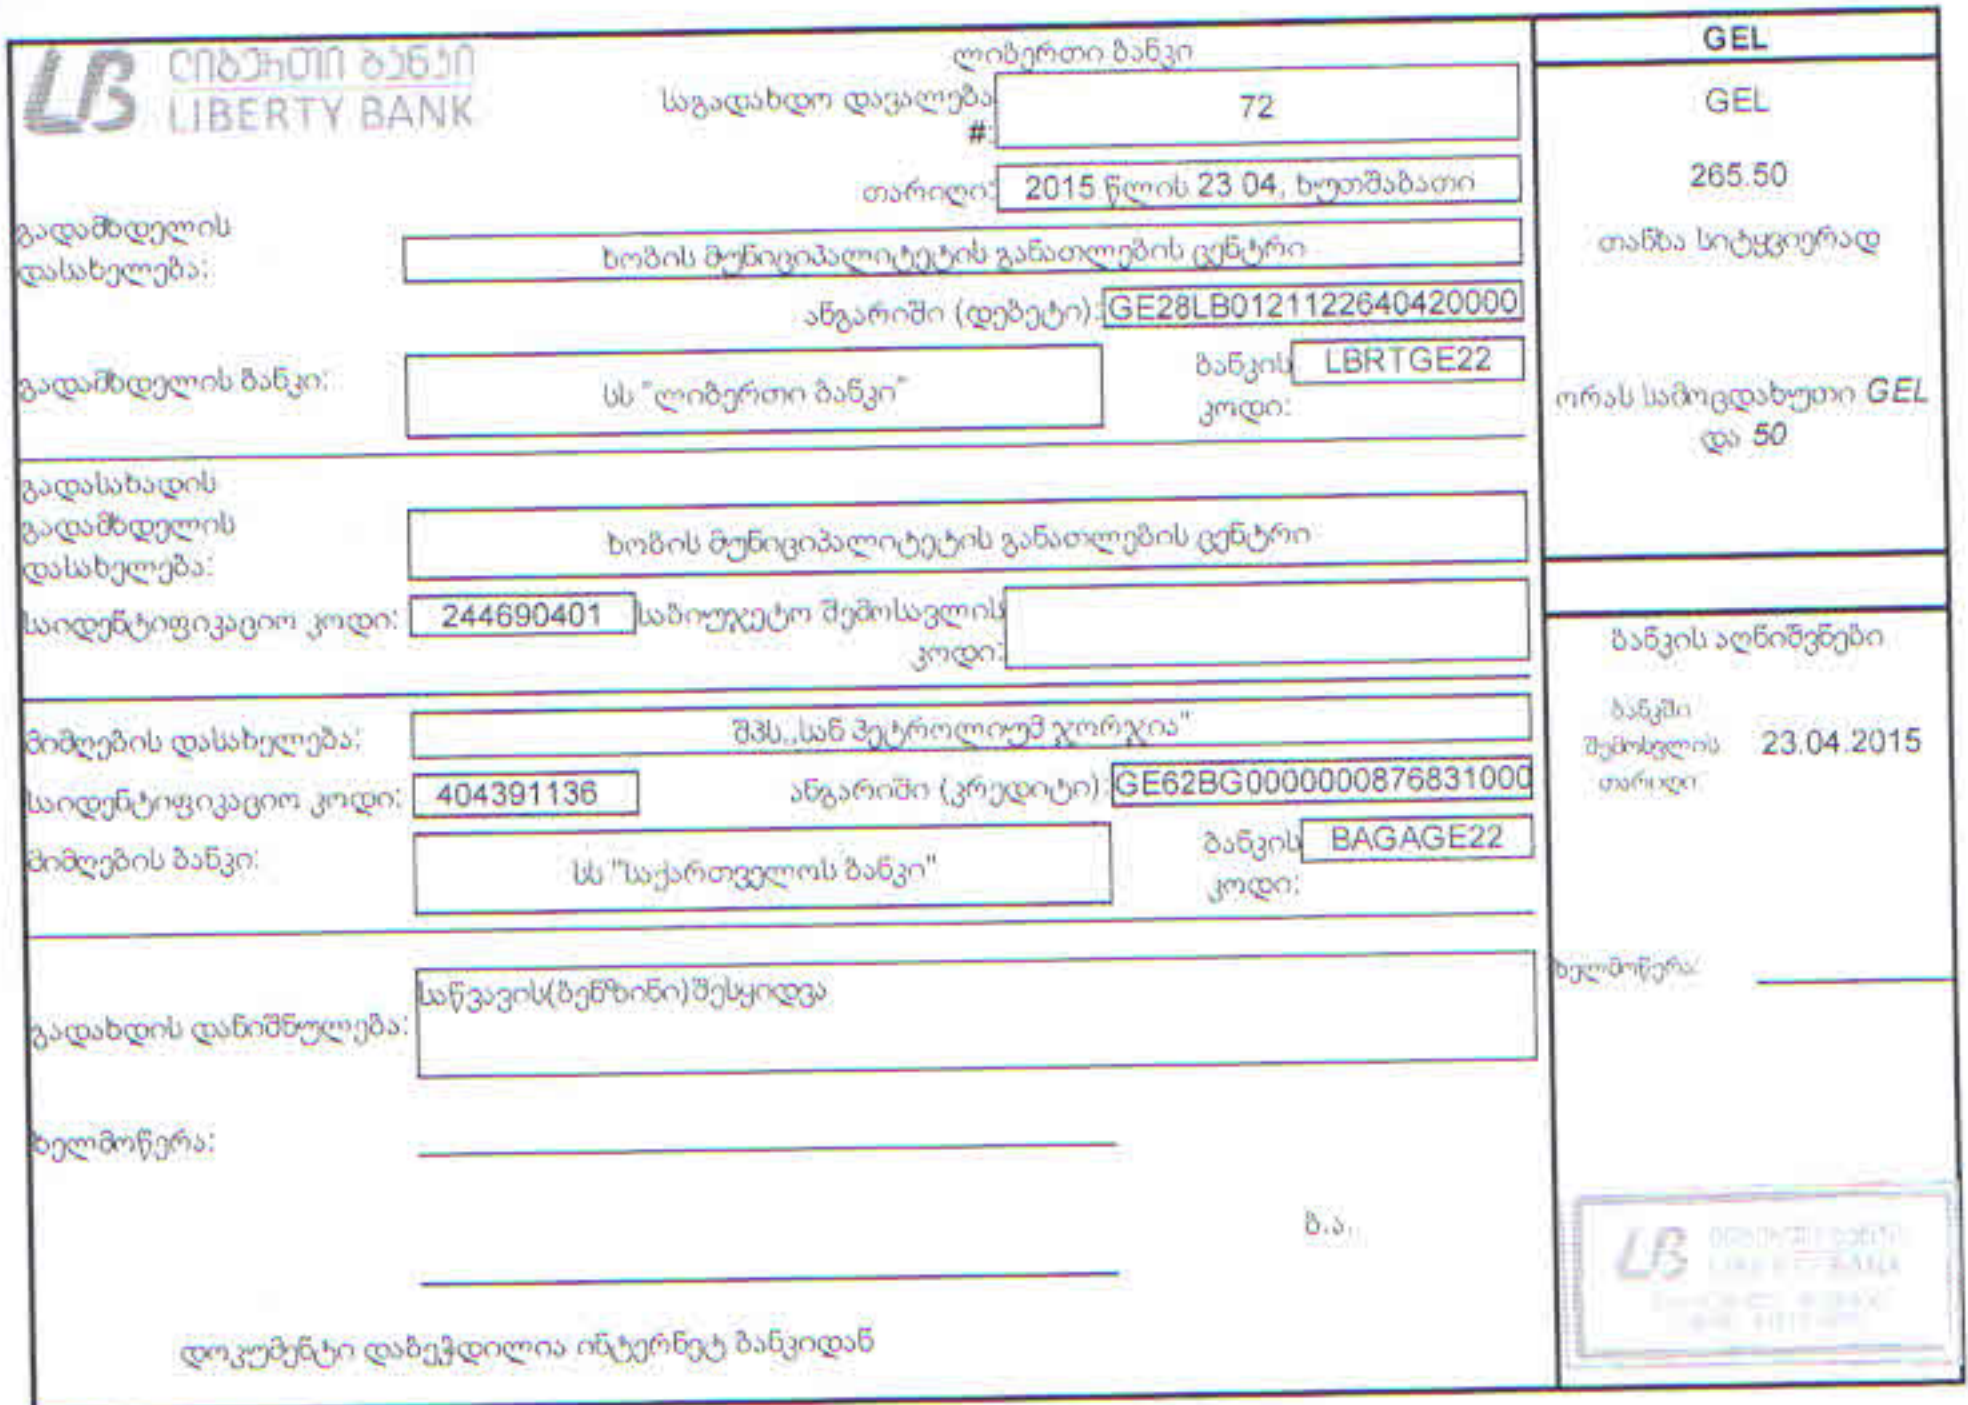 ლიბერთი ბანკი
LIBERTY BANK
ლიბერთი ბანკი
საგადახდო დავალება #: 72
თარიღი: 2015 წლის 23 04, ხუთშაბათი
გადამხდელის დასახელება: ხობის მუნიციპალიტეტის განათლების ცენტრი
ანგარიში (დებეტი): GE28LB0121122640420000
გადამხდელის ბანკი: სს "ლიბერთი ბანკი"
ბანკის კოდი: LBRTGE22
გადასახადის გადამხდელის დასახელება: ხობის მუნიციპალიტეტის განათლების ცენტრი
საიდენტიფიკაციო კოდი: 244690401 საბიუჯეტო შემოსავლის კოდი:
მიმღების დასახელება: შპს,,სან პეტროლიუმ ჯორჯია"
საიდენტიფიკაციო კოდი: 404391136 ანგარიში (კრედიტი): GE62BG0000000876831000
მიმღების ბანკი: სს "საქართველოს ბანკი"
ბანკის კოდი: BAGAGE22
გადახდის დანიშნულება: საწვავის(ბენზინი)შესყიდვა
ხელმოწერა:
ბ.ა.
დოკუმენტი დაბეჭდილია ინტერნეტ ბანკიდან
GEL
GEL
265.50
თანხა სიტყვიერად
ორას სამოცდახუთი GEL
და 50
ბანკის აღნიშვნები
ბანკში შემოსვლის თარიღი: 23.04.2015
ხელმოწერა:
LIBERTY BANK